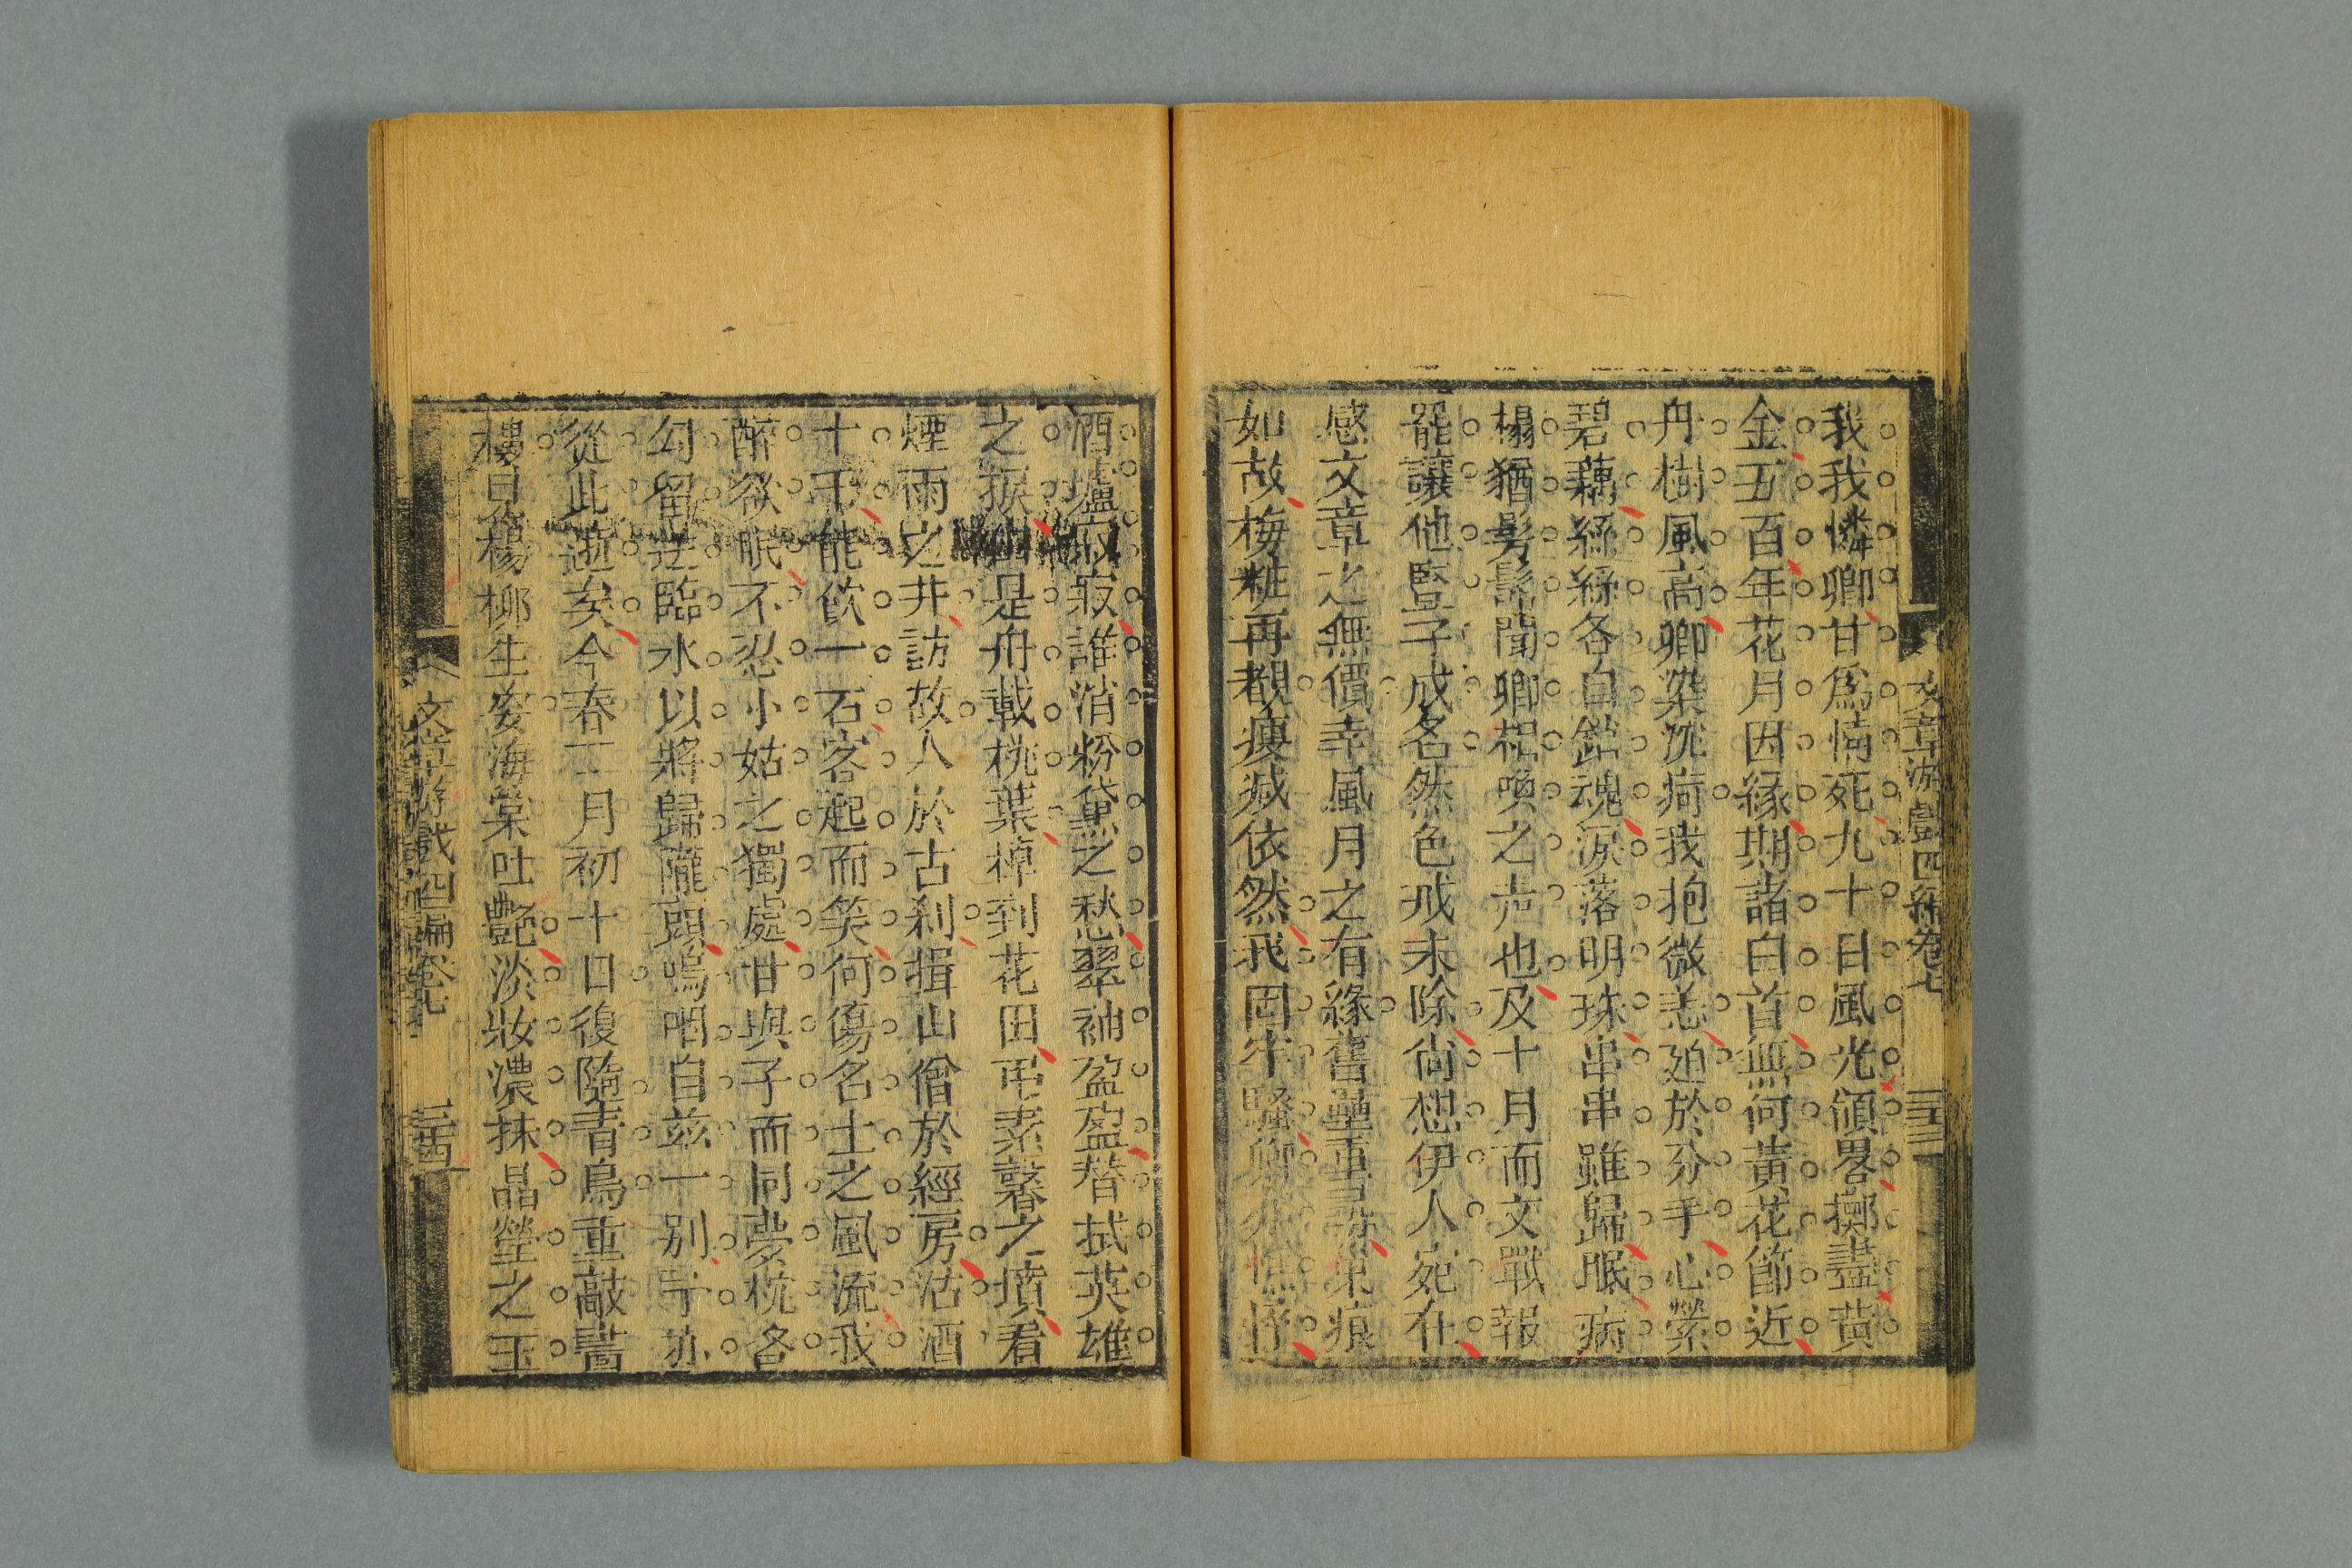 我我憐卿甘爲情死九十日風光領畧擲盡黄
金五百年花月因緣期諸白首無何黃花節近
丹樹風高卿染沈疴我抱微恙廹於分手心縈
碧藕絲絲各自銷魂淚落明珠串串雖歸眠病
榻猶髣髴聞卿相喚之声也及十月而文戰報
罷讓他豎子成名然色戒未除尙想伊人宛在
感文章之無價幸風月之有緣舊壘重尋巢痕
如故梅粧再覩瘦减依然我固牢騷卿亦憔悴
文章游戲四編卷七
三十三
酒壚寂寂誰消粉黛之愁翠袖盈盈替拭英雄
之淚 是舟載桃葉棹到花田弔素馨之墳看
煙雨之井訪故人於古刹揖山僧於經房沽酒
十千能飲一石客起而笑何傷名士之風流我
醉欲眠不忍小姑之獨處甘與子而同夢杭各
勾留 臨水以將歸隴頭嗚咽自兹一别
從此逝矣今春二月初十日復隨青鳥重敲畵
樓見楊柳生姿海棠吐艷淡妝濃抹晶瑩之玉
文章游戲四編卷七
三十四